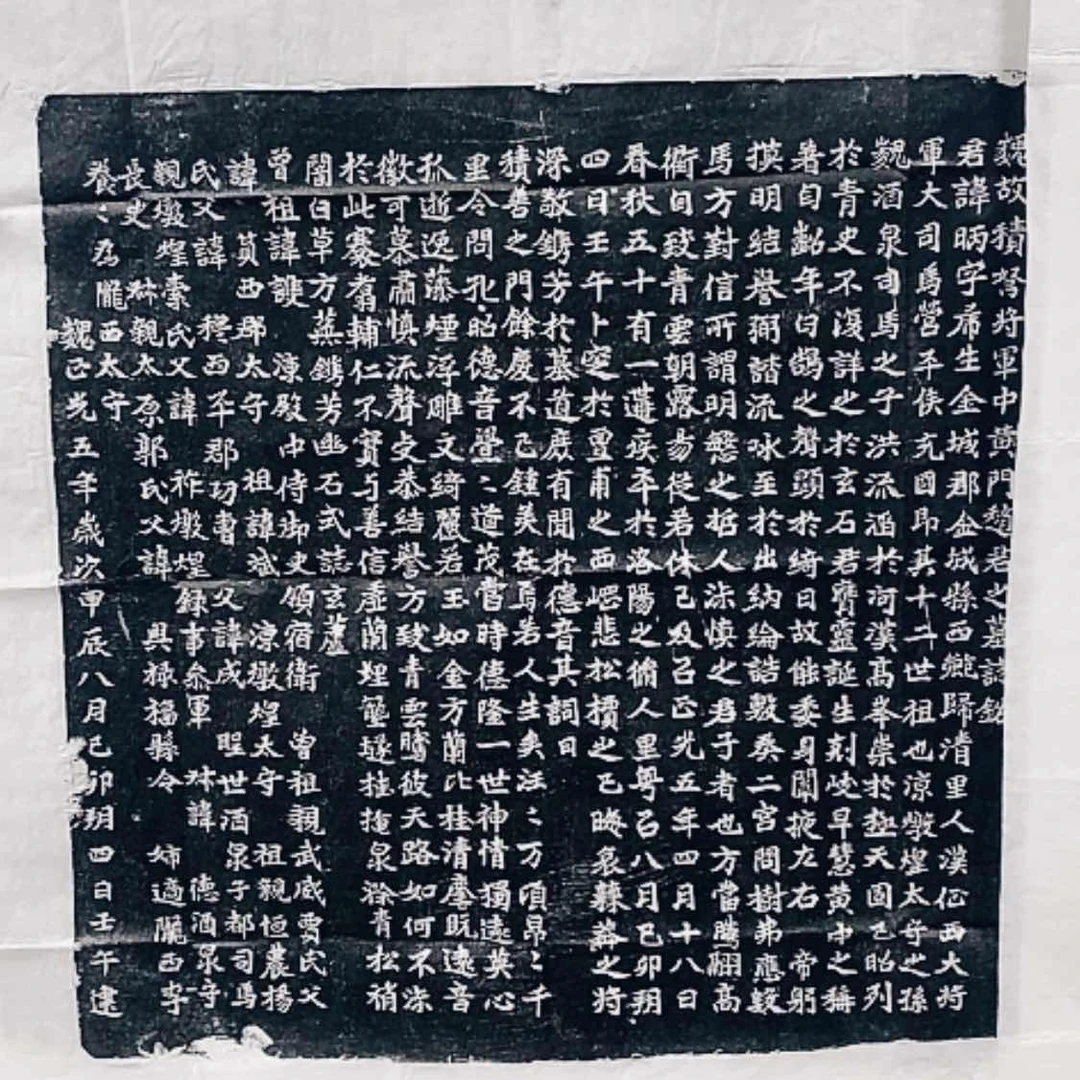 魏故積弩將軍中黃門趙君之墓誌銘
君諱昞字席生金城郡金城縣西鄉歸清里人漢征西大將
軍大司馬營平侯充國即其十二世祖也涼燉煌太守之孫
魏酒泉司馬之子洪流滔於河漢高峯崇於極天固已昭列
於青史不復詳之於玄石君膺靈誕生刻岐早慧黃中之稱
著自齠年白鵠之聲顯於綺日故能委身闈掖左右帝躬
模明結譽弼諧流咏至於出納綸誥敷奏二宮問樹弗應數
馬方對信所謂明慜之哲人淑慎之君子者也方當騰翮高
衢自致青雲朝露昜從若休已及已正光五年四月十八日
春秋五十有一遘疾卒於洛陽之脩人里粵已八月己卯朔
四日壬午卜窆於亶甫之西崿悲松檟之已晦哀蘇蕣之將
深敬鐫芳於墓道庶有聞於德音其詞曰
積善之門餘慶不已鍾美在焉若人生矣汪〻万頃昂〻千
里令問孔昭德音亹〻道茂當時德隆一世神情獨遠英心
孤逝逸藻煙浮雕文綺麗若玉如金方蘭比桂清塵既遠音
徽可慕肅慎流聲史恭結譽方致青雲騰彼天路如何不淑
於此騫翥輔仁不實与善信虛蘭埋壟隧桂掩泉滁青松稍
闇白草方蕪鐫芳幽石式誌玄廬
曾祖諱謏 涼殿中侍御史領宿衛 曾祖親武威賈氏父
諱蓂西郡太守 祖諱斌 涼燉煌太守 祖親恒農楊
氏父諱穆西平郡功曹 父諱成 聖世酒泉子都司馬
親燉煌索氏父諱祚燉煌錄事參軍 林諱德酒泉守
長史 林親太原郭氏父諱興祿福縣令 姉適隴西李
養〻為隴西太守
魏正光五年歲次甲辰八月己卯朔四日壬午建